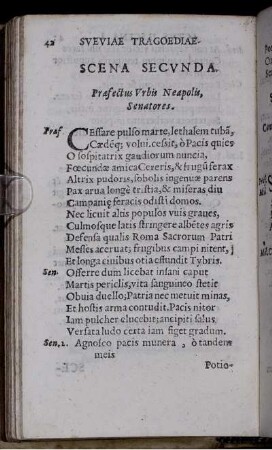 42 SVEVIAE TRAGOEDIAE
SCENA SECVNDA.
Præfectus Vrbis Neapolis,
Senatores.
Præf. CEssare pulso marte, lethalem tubã,
Cædẽq; volui. cessit, ò Pacis quies
O sospitatrix gaudiorum nuncia,
Fœcundæ amica Cereris, & frugũ ferax
Altrix pudoris, sobolis ingenuæ parens
Pax arua longè tristia, & miseras diu
Campanię feracis odisti domos.
Nec licuit altis populos vuis graues,
Culmosque latis stringere albẽtes agris
Defensa qualis Roma Sacrorum Patri
Messes aceruat; frugibus campi nitent,
Et longa ciuibus otia effundit Tybris.
Sen. Offerre dum licebat insani caput
Martis periclis, vita sanguineo stetit
Obuia duello; Patria nec metuit minas,
Et hostis arma contudit. Pacis nitor
Iam pulcher elucebit; ancipiti salus
Versata ludo certa iam figet gradum.
Sen. 2. Agnosco pacis munera, ò tandem
meis
Potio-